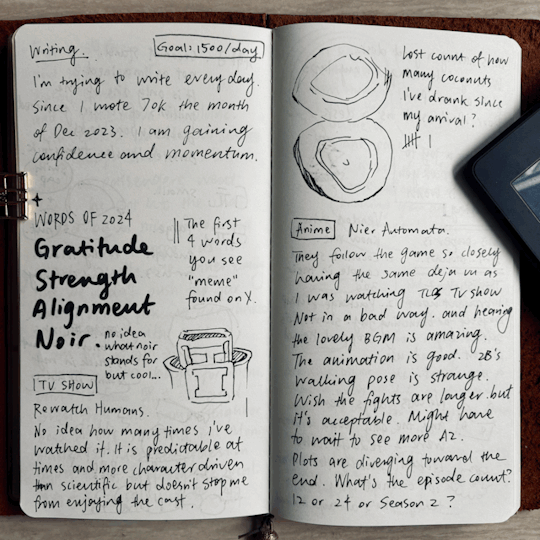 Writing.
Goal: 1500/day
I'm trying to write every day.
Since I wrote 70k the month
of Dec 2023. I am gaining
confidence and momentum.
WORDS OF 2024
Gratitude
Strength
Alignment
Noir.
no idea
what noir
stands for
but cool...
The first
4 words
you see
"meme"
found on X.
TV SHOW
Rewatch Humans.
No idea how many times I've
watched it. It is predictable at
times and more character driven
than scientific but doesn't stop me
from enjoying the cast.
Lost count of how
many coconuts
I've drank since
my arrival?
Anime
Nier Automata.
They follow the game so closely
having the same deja vu as
I was watching TLOS TV show
Not in a bad way. and hearing
the lovely BGM is amazing.
The animation is good. 2B's
walking pose is strange.
Wish the fights are longer but
it's acceptable. Might have
to wait to see more A2.
Plots are diverging toward the
end. What's the episode count?
12 or 24 or Season 2?